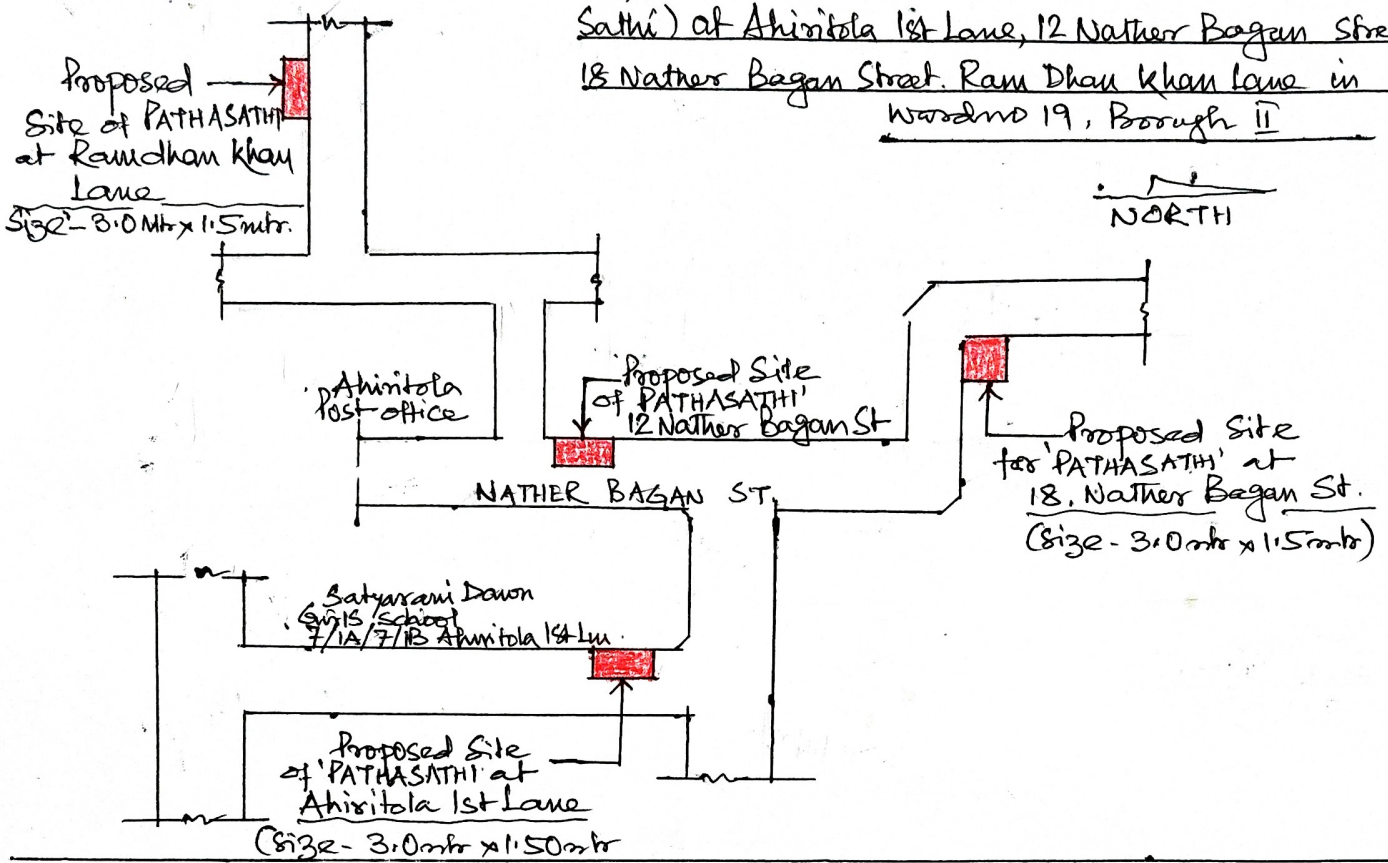 Sathi) at Ahiritola 1st Lane, 12 Nather Bagan Stre
18 Nather Bagan Street. Ram Dhan Khan Lane in
Wardno 19, Borough II
NORTH
Proposed
Site of PATHASATHI
at Ramdhan Khan
Lane
Size - 3.0 Mtr x 1.5 mtr.
Ahiritola
Post office
Proposed Site
of 'PATHASATHI'
12 Nather Bagan St
NATHER BAGAN ST,
Proposed Site
for 'PATHASATHI' at
18, Nather Bagan St.
(Size - 3.0 mtr x 1.5 mtr)
Satyarani Down
Girls School
7/1A/7/1B Ahiritola 1st Ln.
Proposed Site
of 'PATHASATHI' at
Ahiritola 1st Lane
(Size - 3.0 mtr x 1.50 mtr